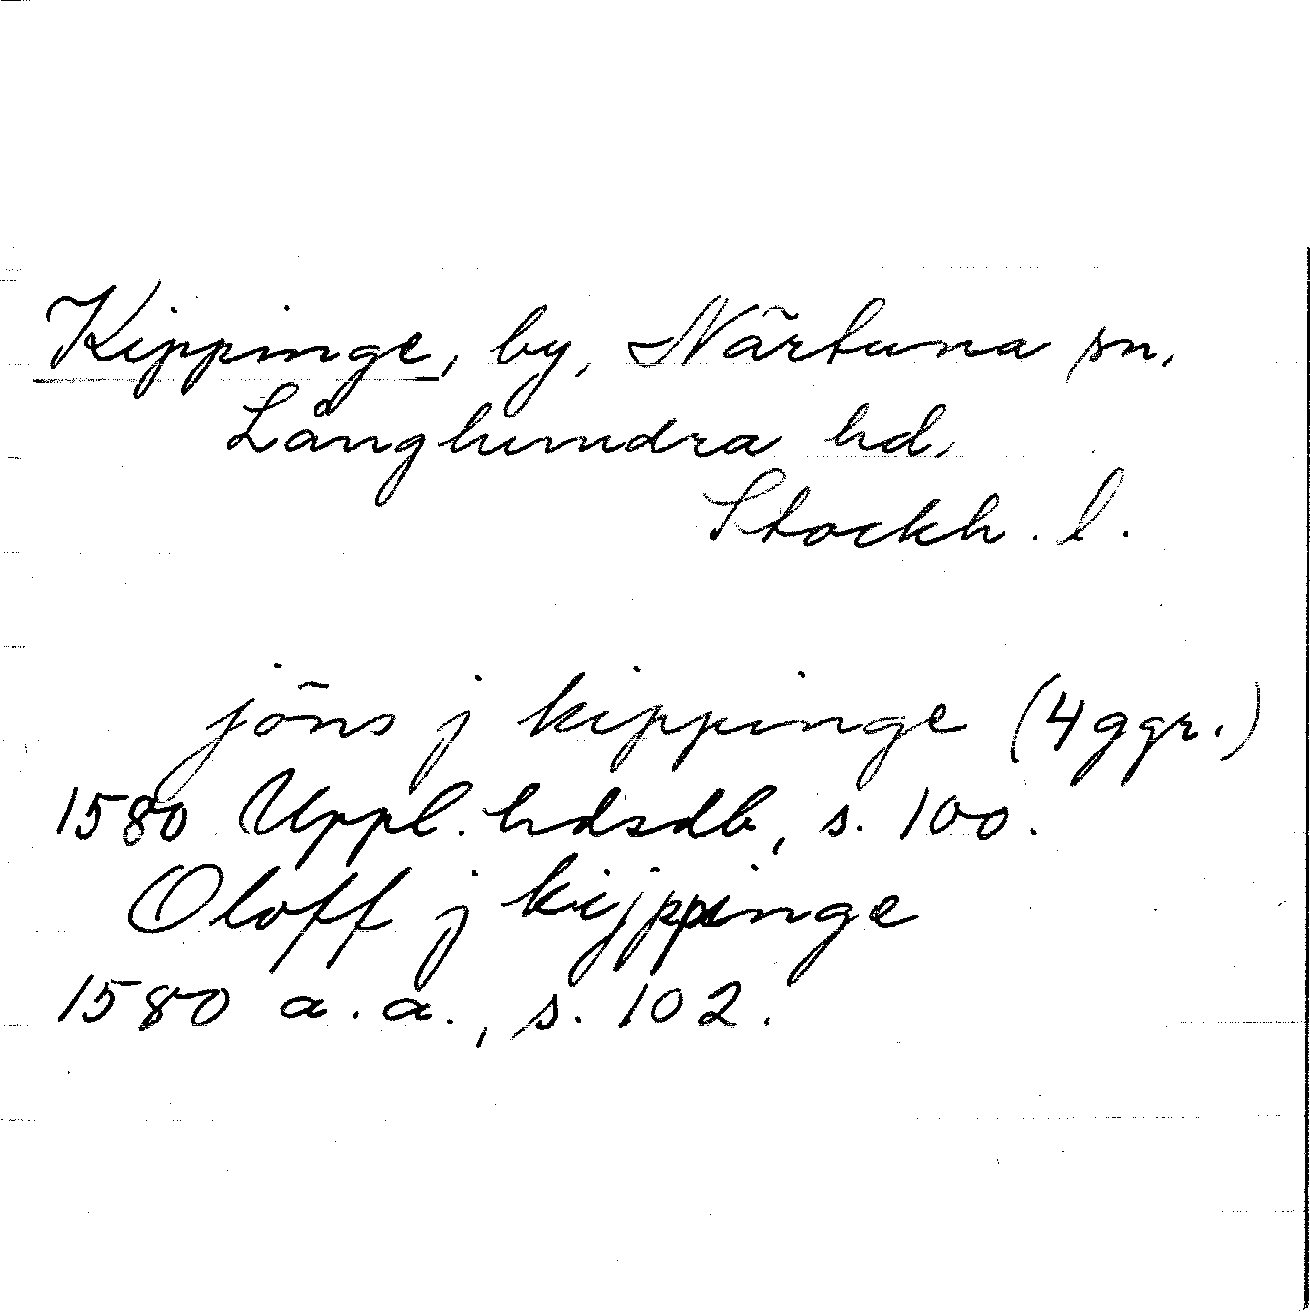 Kippinge, by, Närtuna sn,
Långhundra hd,
Stockh. l.
jöns j kippinge (4 ggr.)
1580 Uppl. hdsdb, s. 100.
Oloff j kijppinge
1580 a. a., s. 102.